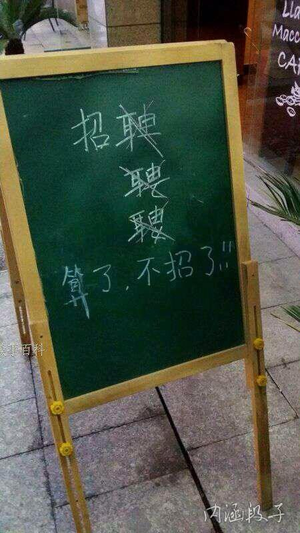 招聘
聘
聘
算了，不招了!!
Lla
Macc
CA
百科
内涵段子